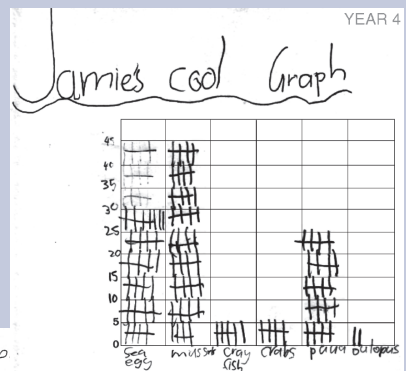 YEAR 4
Jamie's cool Graph
45
40
35
30
25
20
15
10
5
0
sea egg
mussel
cray fish
crabs
paua